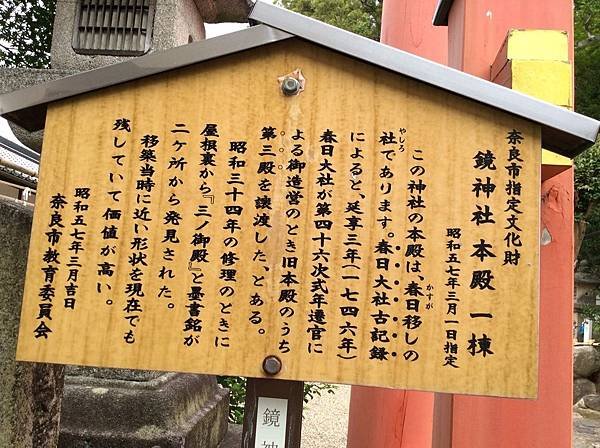 奈良市指定文化財
鏡神社本殿一棟
昭和五七年三月一日指定
この神社の本殿は、春日移しの
かすが
社であります。春日大社古記録
やしろ
によると、延享三年(一七四六年)
春日大社が第四十六次式年遷宮に
よる御造営のとき旧本殿のうち
第三殿を譲渡した、とある。
昭和三十四年の修理のときに
屋根裏から『三ノ御殿』と墨書銘が
二ヶ所から発見された。
移築当時に近い形状を現在でも
残していて価値が高い。
昭和五七年三月吉日
奈良市教育委員会
鏡神